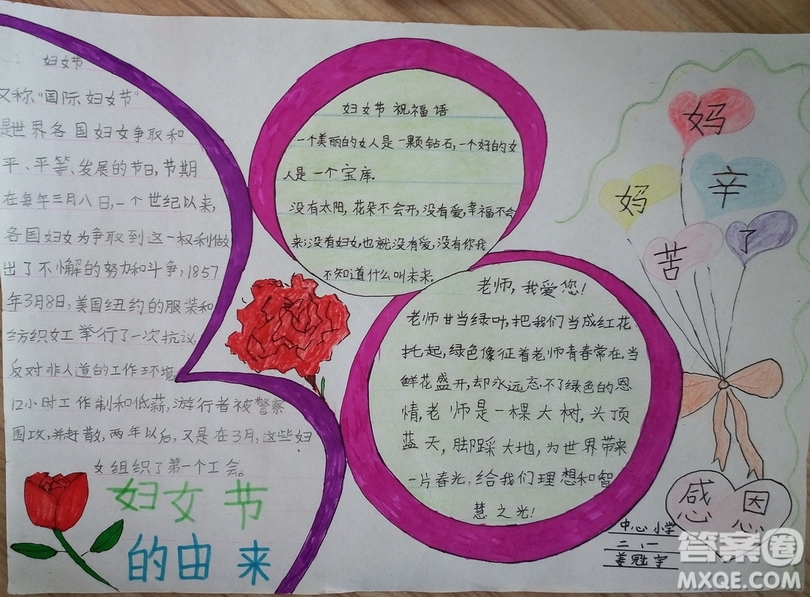 妇女节
又称“国际妇女节”
是世界各国妇女争取和
平、平等、发展的节日,节期
在每年三月八日,一个世纪以来,
各国妇女为争取到这一权利做
出了不懈的努力和斗争,1857
年3月8日,美国纽约的服装和
纺织女工举行了一次抗议
反对非人道的工作环境
12小时工作制和低薪,游行者被警察
围攻,并赶散,两年以后,又是在3月,这些妇
女组织了第一个工会。
妇女节
的由来
妇女节祝福语
一个美丽的女人是一颗钻石,一个好的女
人是一个宝库.
没有太阳,花朵不会开,没有爱,幸福不会
来;没有妇女,也就没有爱,没有你我
不知道什么叫未来.
老师,我爱您!
老师甘当绿叶,把我们当成红花
扎起,绿色像征着老师青春常在.当
鲜花盛开,却永远忘不了绿色的恩
情,老师是一棵大树,头顶
蓝天,脚踩大地,为世界带来
一片春光,给我们理想和智
慧之光!
妈
妈辛
苦了
感恩
中心小学
二、一
姜胜宇
答案圈
MXQE.COM